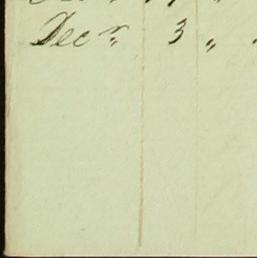 Decr 3 "